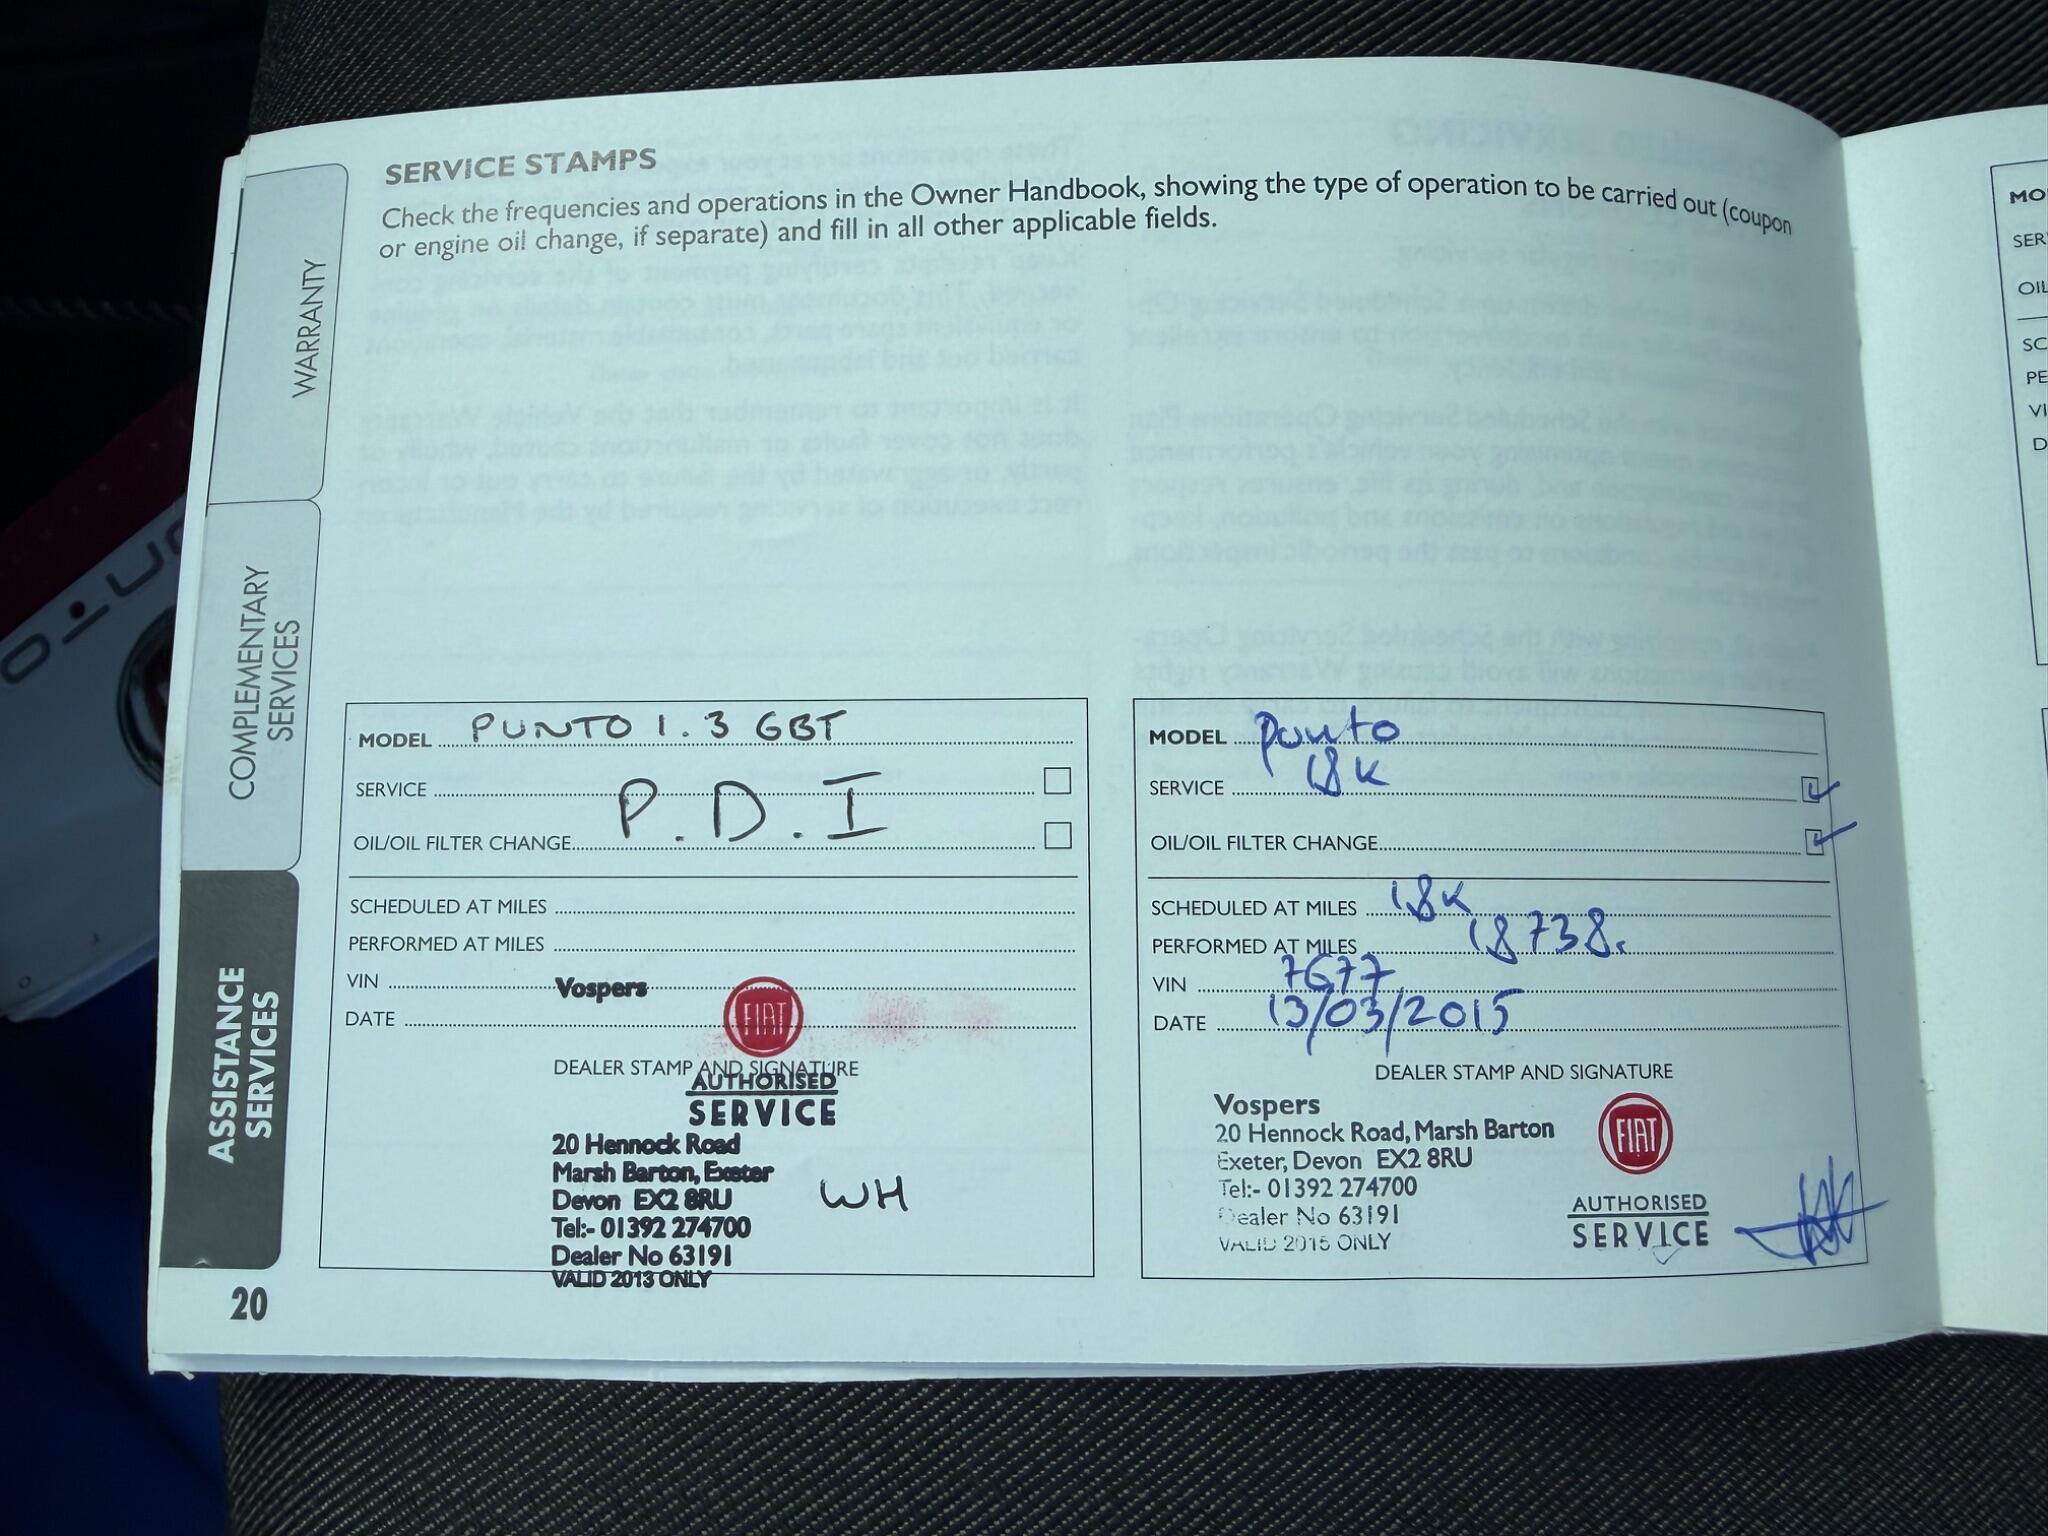 SERVICE STAMPS
Check the frequencies and operations in the Owner Handbook, showing the type of operation to be carried out (coupon
or engine oil change, if separate) and fill in all other applicable fields.
WARRANTY
COMPLEMENTARY
SERVICES
ASSISTANCE
SERVICES
MODEL PUNTO 1.3 GBT
SERVICE P.D.I
OIL/OIL FILTER CHANGE
SCHEDULED AT MILES
PERFORMED AT MILES
VIN
DATE
Vospers
FIAT
DEALER STAMP AND SIGNATURE
AUTHORISED
SERVICE
20 Hennock Road
Marsh Barton, Exeter
Devon EX2 8RU
Tel:- 01392 274700
Dealer No 63191
VALID 2013 ONLY
WH
MODEL Punto
SERVICE 18K
OIL/OIL FILTER CHANGE
SCHEDULED AT MILES 18K
PERFORMED AT MILES 18738.
VIN 7G77
DATE 13/03/2015
DEALER STAMP AND SIGNATURE
Vospers
20 Hennock Road, Marsh Barton
Exeter, Devon EX2 8RU
Tel:- 01392 274700
Dealer No 63191
VALID 2015 ONLY
FIAT
AUTHORISED
SERVICE
20